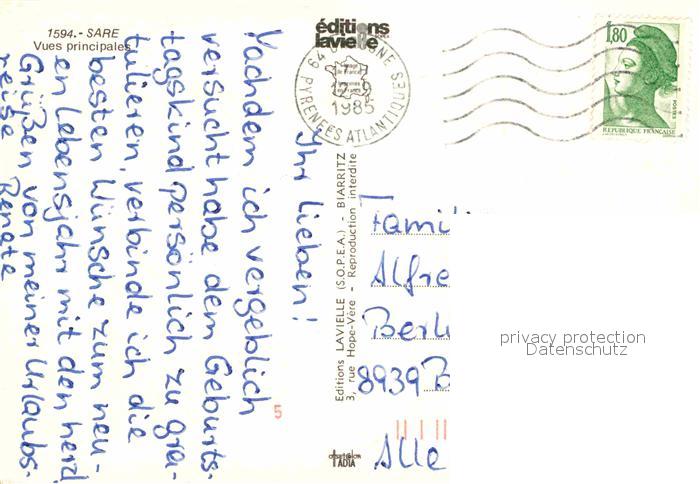 1594.- SARE
Vues principales
éditions
lavielle
Ihr Lieben!
Nachdem ich vergeblich
versucht habe dem Geburts-
tagskind persönlich zu gra-
tulieren, verbinde ich die
besten Wünsche zum neu-
en Lebensjahr mit den herzl.
Grüßen von meiner Urlaubs-
reise Renate
Editions LAVIELLE (S.O.P.E.A.) - BIARRITZ
3, rue Hope-Vère - Reproduction interdite
1985
PYRENEES ATLANTIQUES
1,80
POSTES
REPUBLIQUE FRANÇAISE
Famil
Alfre
Berli
8939 B
Alle
5
privacy protection
Datenschutz